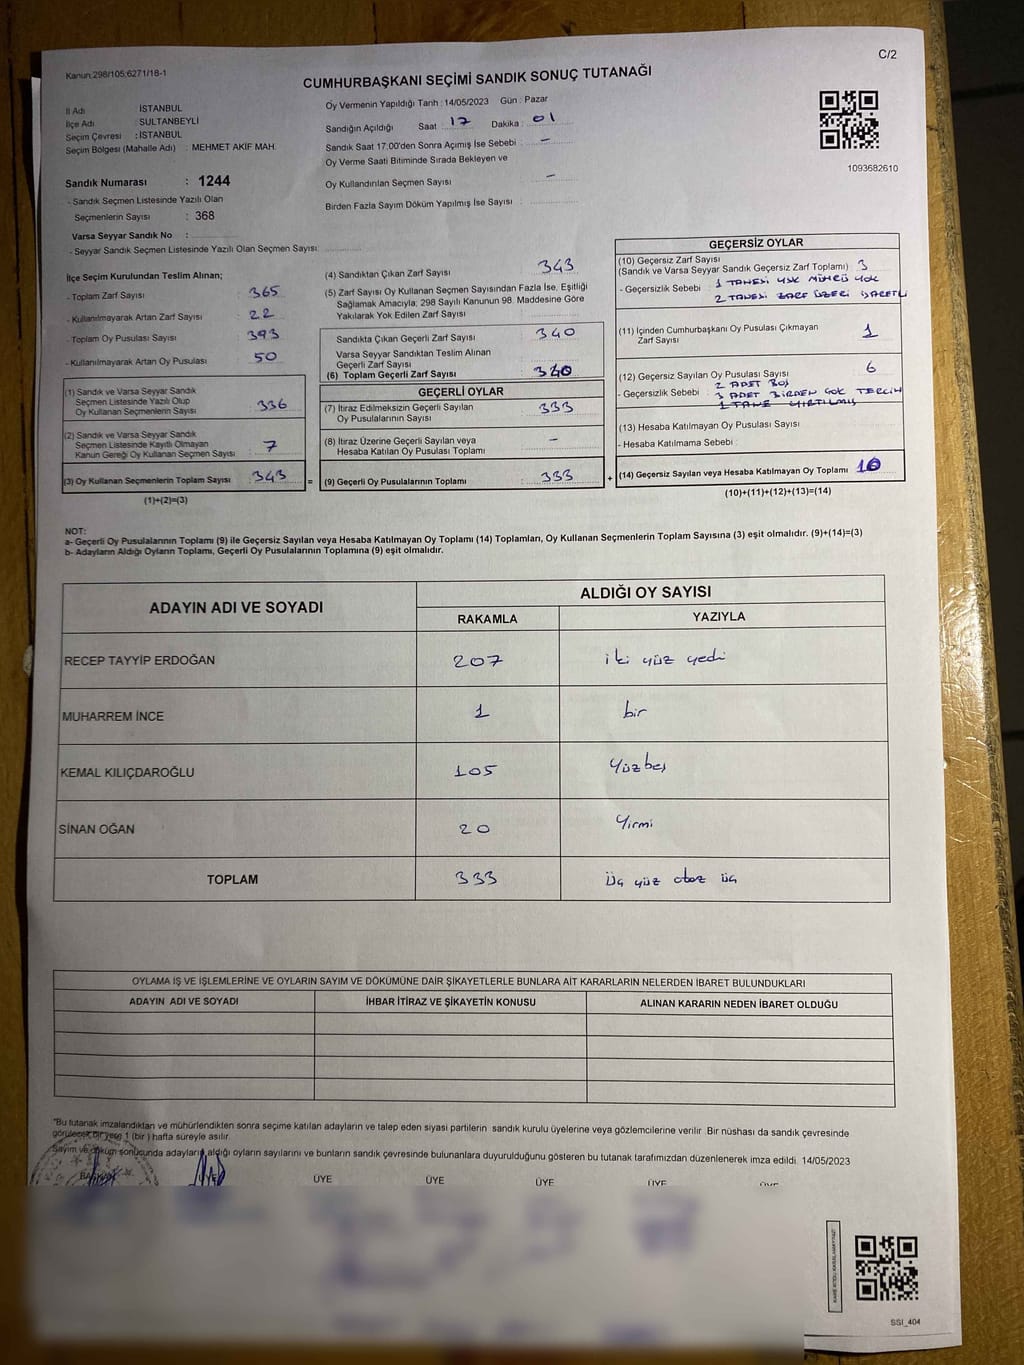 Kanun:298/105;6271/18-1
C/2
CUMHURBAŞKANI SEÇİMİ SANDIK SONUÇ TUTANAĞI
İl Adı İSTANBUL
İlçe Adı : SULTANBEYLİ
Seçim Çevresi : İSTANBUL
Seçim Bölgesi (Mahalle Adı) : MEHMET AKİF MAH.
Sandık Numarası : 1244
- Sandık Seçmen Listesinde Yazılı Olan
Seçmenlerin Sayısı : 368
Varsa Seyyar Sandık No :
- Seyyar Sandık Seçmen Listesinde Yazılı Olan Seçmen Sayısı:
Oy Vermenin Yapıldığı Tarih : 14/05/2023 Gün : Pazar
Sandığın Açıldığı Saat : 17 Dakika : 01
Sandık Saat 17:00'den Sonra Açımış İse Sebebi : –
Oy Verme Saati Bitiminde Sırada Bekleyen ve
Oy Kullandırılan Seçmen Sayısı : –
Birden Fazla Sayım Döküm Yapılmış İse Sayısı :
1093682610
İlçe Seçim Kurulundan Teslim Alınan;
- Toplam Zarf Sayısı : 365
- Kullanılmayarak Artan Zarf Sayısı : 22
- Toplam Oy Pusulası Sayısı : 393
- Kullanılmayarak Artan Oy Pusulası : 50
(1) Sandık ve Varsa Seyyar Sandık
Seçmen Listesinde Yazılı Olup
Oy Kullanan Seçmenlerin Sayısı : 336
(2) Sandık ve Varsa Seyyar Sandık
Seçmen Listesinde Kayıtlı Olmayan
Kanun Gereği Oy Kullanan Seçmen Sayısı : 7
(3) Oy Kullanan Seçmenlerin Toplam Sayısı : 343 =
(1)+(2)=(3)
(4) Sandıktan Çıkan Zarf Sayısı : 343
(5) Zarf Sayısı Oy Kullanan Seçmen Sayısından Fazla İse, Eşitliği
Sağlamak Amacıyla; 298 Sayılı Kanunun 98. Maddesine Göre
Yakılarak Yok Edilen Zarf Sayısı :
Sandıkta Çıkan Geçerli Zarf Sayısı : 340
Varsa Seyyar Sandıktan Teslim Alınan
Geçerli Zarf Sayısı :
(6) Toplam Geçerli Zarf Sayısı : 340
GEÇERLİ OYLAR
(7) İtiraz Edilmeksizin Geçerli Sayılan : 333
Oy Pusulalarının Sayısı
(8) İtiraz Üzerine Geçerli Sayılan veya : –
Hesaba Katılan Oy Pusulası Toplamı
(9) Geçerli Oy Pusulalarının Toplamı : 333 +
GEÇERSİZ OYLAR
(10) Geçersiz Zarf Sayısı
(Sandık ve Varsa Seyyar Sandık Geçersiz Zarf Toplamı) : 3
- Geçersizlik Sebebi : 1 TANESİ YSK MÜHRÜ YOK
2 TANESİ ZARF ÜZERİ İŞARETLİ
(11) İçinden Cumhurbaşkanı Oy Pusulası Çıkmayan
Zarf Sayısı : 1
(12) Geçersiz Sayılan Oy Pusulası Sayısı : 6
2 ADET BOŞ
- Geçersizlik Sebebi : 3 ADET BİRDEN ÇOK TERCİH
1 TANE YIRTILMIŞ
(13) Hesaba Katılmayan Oy Pusulası Sayısı :
- Hesaba Katılmama Sebebi :
(14) Geçersiz Sayılan veya Hesaba Katılmayan Oy Toplamı : 10
(10)+(11)+(12)+(13)=(14)
NOT:
a- Geçerli Oy Pusulalarının Toplamı (9) ile Geçersiz Sayılan veya Hesaba Katılmayan Oy Toplamı (14) Toplamları, Oy Kullanan Seçmenlerin Toplam Sayısına (3) eşit olmalıdır. (9)+(14)=(3)
b- Adayların Aldığı Oyların Toplamı, Geçerli Oy Pusulalarının Toplamına (9) eşit olmalıdır.
ADAYIN ADI VE SOYADI ALDIĞI OY SAYISI
RAKAMLA YAZIYLA
RECEP TAYYİP ERDOĞAN 207 iki yüz yedi
MUHARREM İNCE 1 bir
KEMAL KILIÇDAROĞLU 105 Yüzbeş
SİNAN OĞAN 20 Yirmi
TOPLAM 333 üç yüz otuz üç
OYLAMA İŞ VE İŞLEMLERİNE VE OYLARIN SAYIM VE DÖKÜMÜNE DAİR ŞİKAYETLERLE BUNLARA AİT KARARLARIN NELERDEN İBARET BULUNDUKLARI
ADAYIN ADI VE SOYADI İHBAR İTİRAZ VE ŞİKAYETİN KONUSU ALINAN KARARIN NEDEN İBARET OLDUĞU
*Bu tutanak imzalandıktan ve mühürlendikten sonra seçime katılan adayların ve talep eden siyasi partilerin sandık kurulu üyelerine veya gözlemcilerine verilir. Bir nüshası da sandık çevresinde
görülecek bir yere 1 (bir ) hafta süreyle asılır.
Sayım ve döküm sonucunda adayların aldığı oyların sayılarını ve bunların sandık çevresinde bulunanlara duyurulduğunu gösteren bu tutanak tarafımızdan düzenlenerek imza edildi. 14/05/2023
BAŞKAN ÜYE ÜYE ÜYE ÜYE ÜYE
SSI_404